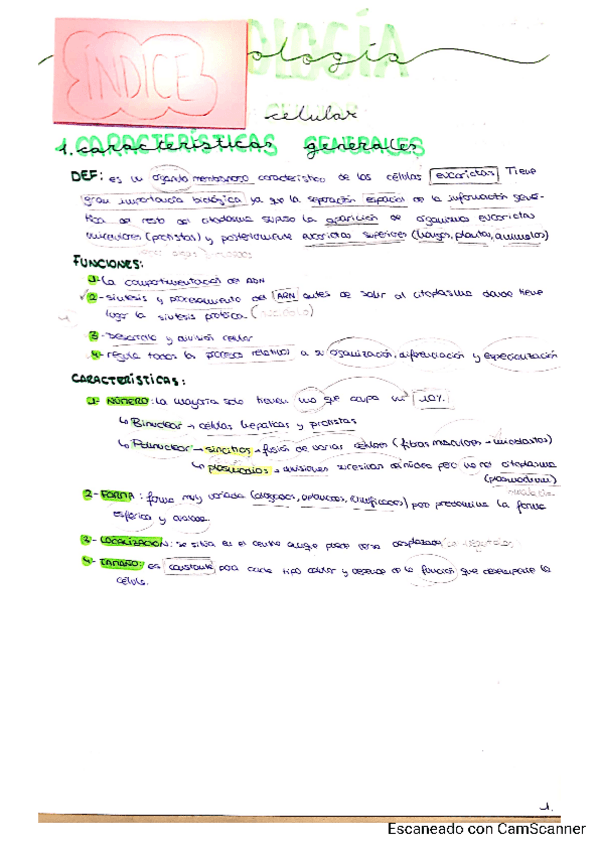 ÍNDICE
ología
celular
1. características generales
DEF: es un orgánulo membranoso característico de las células eucariotas Tiene
gran importancia biológica ya que la separación espacial de la información gené-
tica del resto del citoplasma supuso la aparición de organismos eucariotas
unicelulares (protistas) y posteriormente eucariotas superiores (hongos, plantas, animales)
FUNCIONES:
1- La compartimentación del ADN
2- síntesis y procesamiento del ARN antes de salir al citoplasma donde tiene
lugar la síntesis proteica. (nucleolo)
3- Desarrollo y división celular
4- regula todos los procesos relativos a su organización, diferenciación y especialización
CARACTERÍSTICAS:
1- NÚMERO: la mayoría solo tienen uno que ocupa un 10%.
↳ Binuclear → células hepáticas y protistas
↳ Polinuclear → sincitios → fusión de varias células (fibras musculares → mioblastos)
↳ plasmodios → divisiones sucesivas del núcleo pero no del citoplasma
(plasmodium)
2- FORMA: forma muy variada (alargados, aplanados, ) pero predomina la forma
esférica y ovoide.
3- LOCALIZACIÓN: se sitúa en el centro aunque puede verse desplazado en vegetales
4- TAMAÑO: es constante para cada tipo celular y depende de la función que desempeñe la
célula.
1.
Escaneado con CamScanner